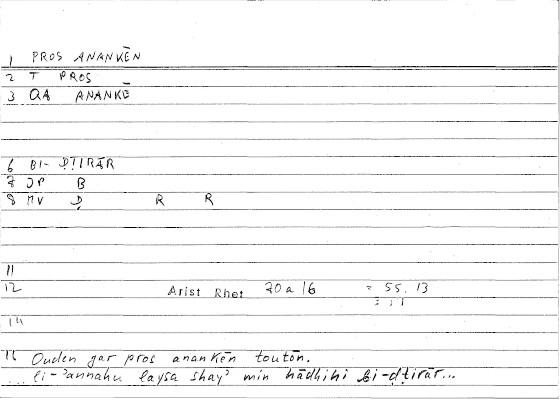 1 PROS ANANKĒN
2 T PROS
3 QA ANANKĒ
6 BI- ḌṬIRĀR
7 JP B
8 MV Ḍ R R
11
12 Arist Rhet 20a16 = 55.13
14
15 Ouden gar pros anankēn toutōn.
... li-ʾannahu laysa shayʾ min hādhihi bi-ḍṭirār...